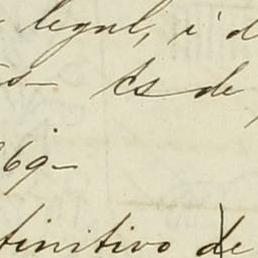 legal, i d
Es de
69-
finitivo de